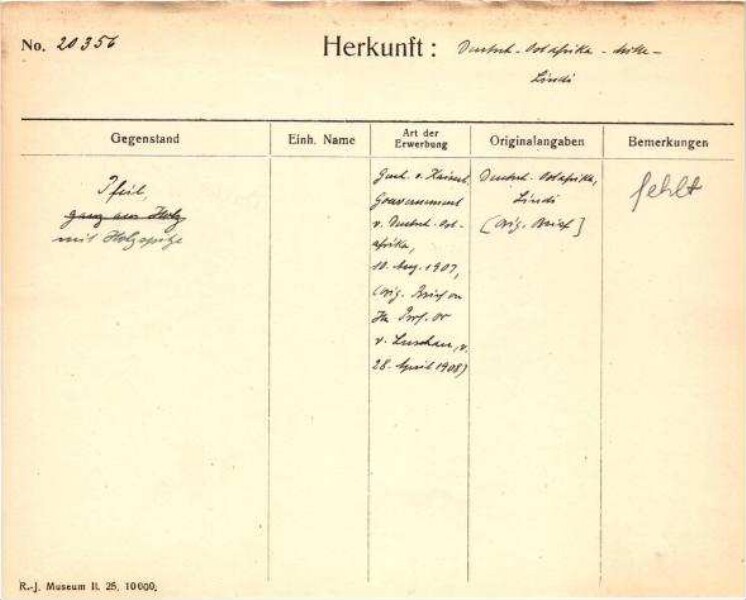 No. 20356
Herkunft: Deutsch-Ostafrika -
Lindi
Gegenstand
Einh. Name
Art der
Erwerbung
Originalangaben
Bemerkungen
Pfeil,
ganz aus Holz
mit Holzspitze
Gesch. v. Kaiserl.
Gouvernement
v. Deutsch-Ost-
afrika,
10. Aug. 1907,
(Orig. Brief an
Hr. Prof. Dr
v. Luschan, v.
28. April 1908)
Deutsch-Ostafrika,
Lindi
[Orig. Brief]
fehlt
R.-J. Museum II. 25. 10000.